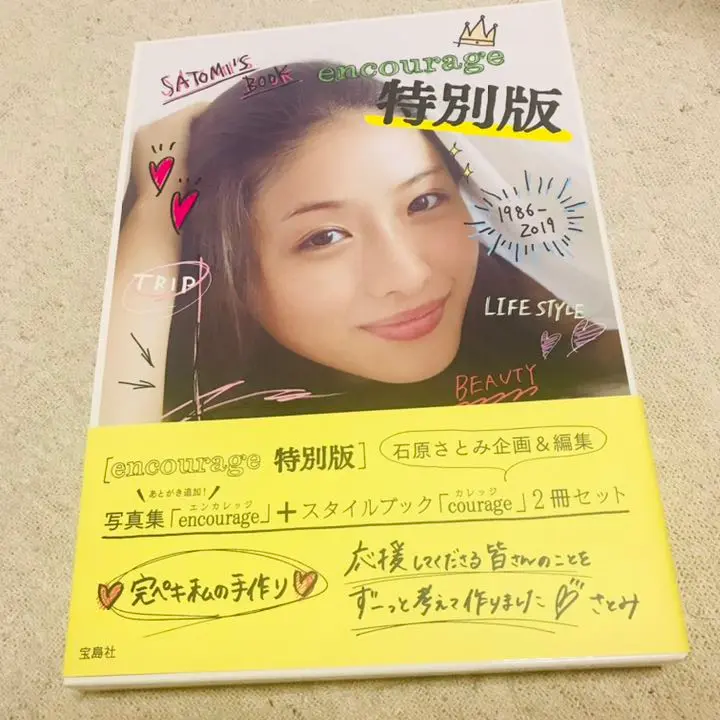 SATOMI'S
BOOK
encourage
特別版
1986-
2019
TRIP
LIFE STYLE
BEAUTY
[encourage 特別版]
石原さとみ企画&編集
あとがき追加!
エンカレッジ
カレッジ
写真集「encourage」+スタイルブック「courage」2冊セット
完ペキ私の手作り
応援してくださる皆さんのことを
ずーっと考えて作りました♡さとみ
宝島社